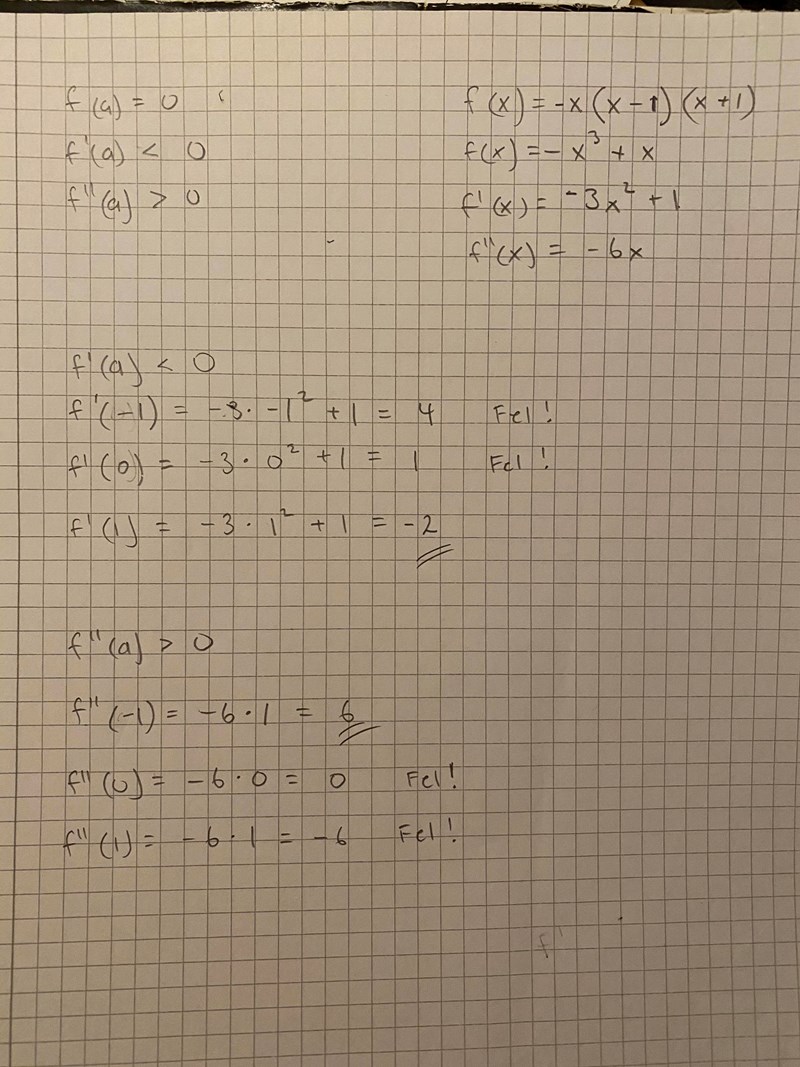 f(a) = 0
f'(a) < 0
f''(a) > 0
f(x) = -x(x-1)(x+1)
f(x) = -x³ + x
f'(x) = -3x² + 1
f''(x) = -6x
f'(a) < 0
f'(-1) = -3·-1² + 1 = 4 Fel!
f'(0) = -3·0² + 1 = 1 Fel!
f'(1) = -3·1² + 1 = -2
f''(a) > 0
f''(-1) = -6·1 = 6
f''(0) = -6·0 = 0 Fel!
f''(1) = -6·1 = -6 Fel!
f'